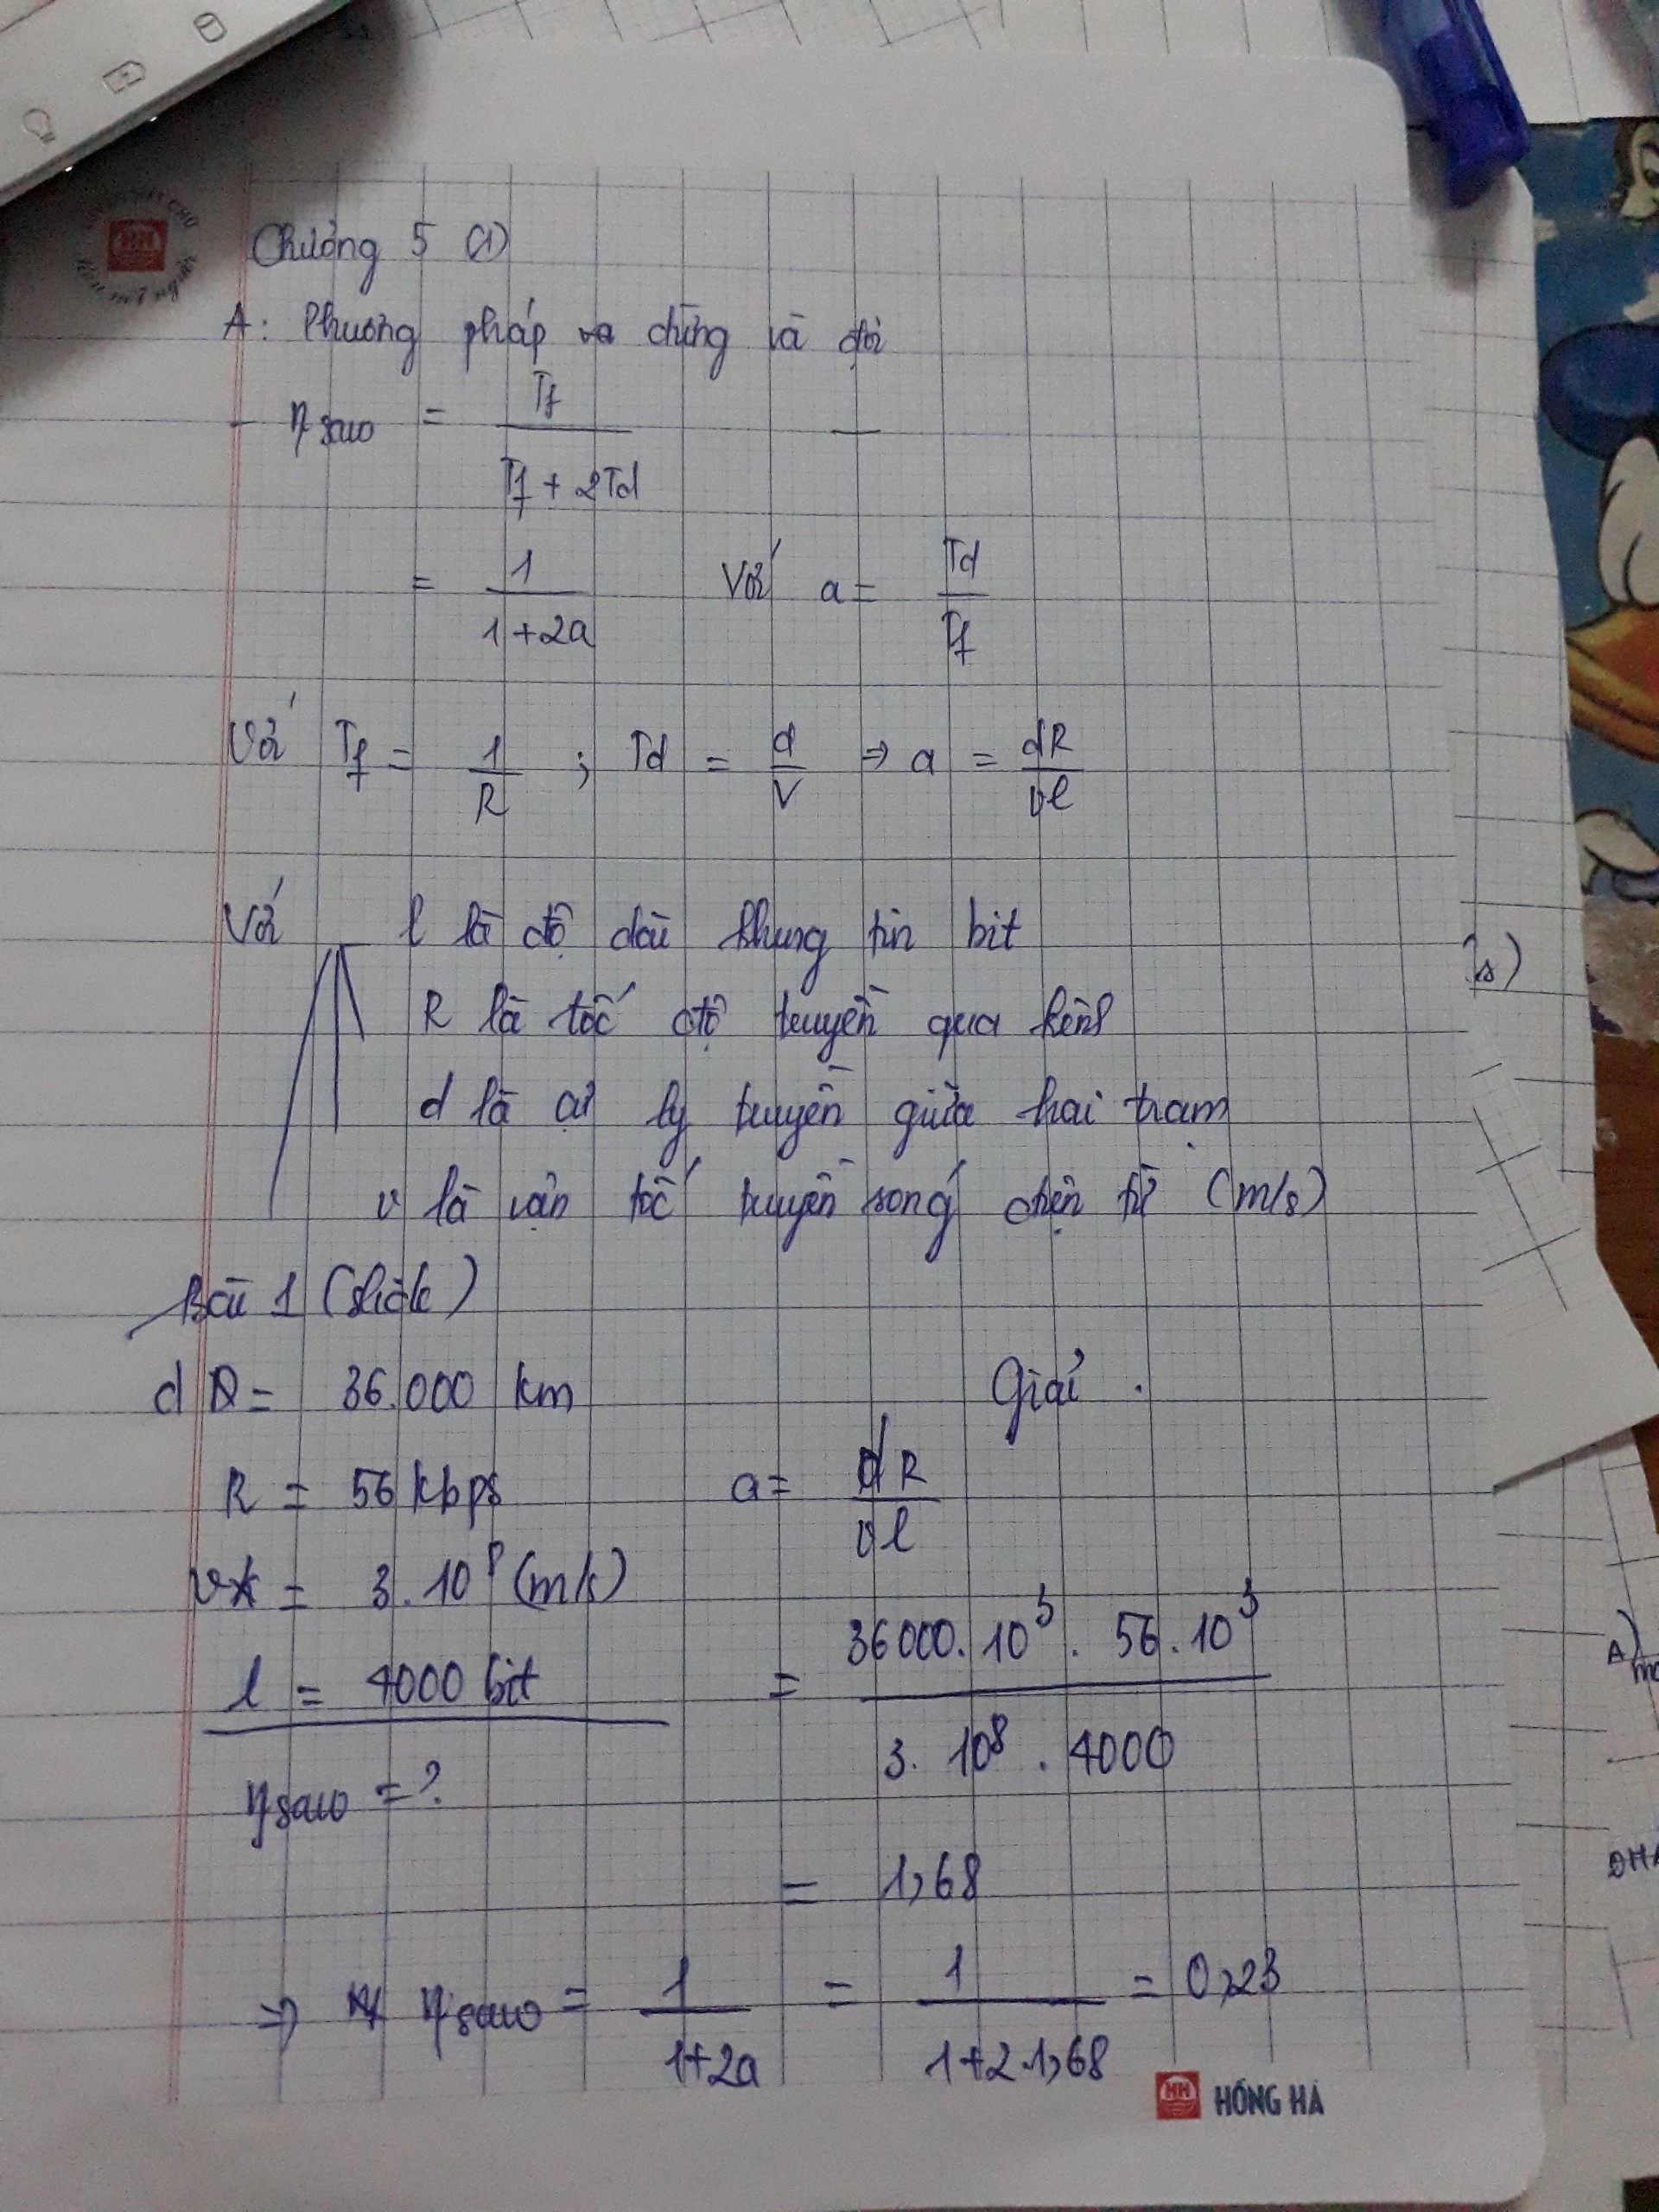 Chương 5 (1)
A: Phương pháp dừng và đợi
- η saw = Tf / (Tf + 2Td)
= 1 / (1+2a) Với a = Td / Tf
Với Tf = 1/R ; Td = d/V ⇒ a = dR / vl
Với l là độ dài khung tin bit
R là tốc độ truyền qua kênh
d là cự ly truyền giữa hai trạm
v là vận tốc truyền sóng điện từ (m/s)
Bài 1 (slide)
d = 36.000 km
Giải
R = 56 kbps
a = dR / vl
v = 3.10^8 (m/s)
l = 4000 bit
= 36000.10^3 . 56.10^3 / 3.10^8 . 4000
ηsaw = ?
= 1,68
⇒ ηsaw = 1 / (1+2a) = 1 / (1+2.1,68) = 0,23
HH HỒNG HÀ